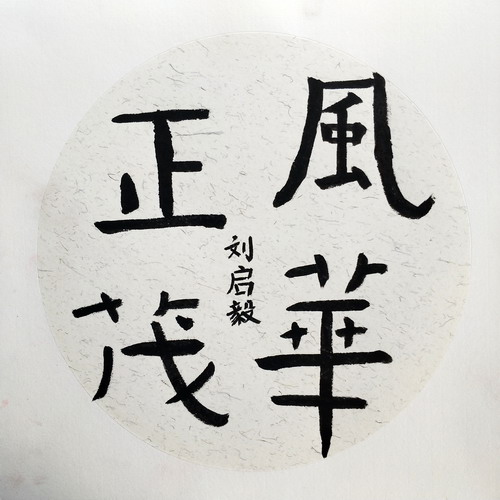 風華
正茂
刘启毅